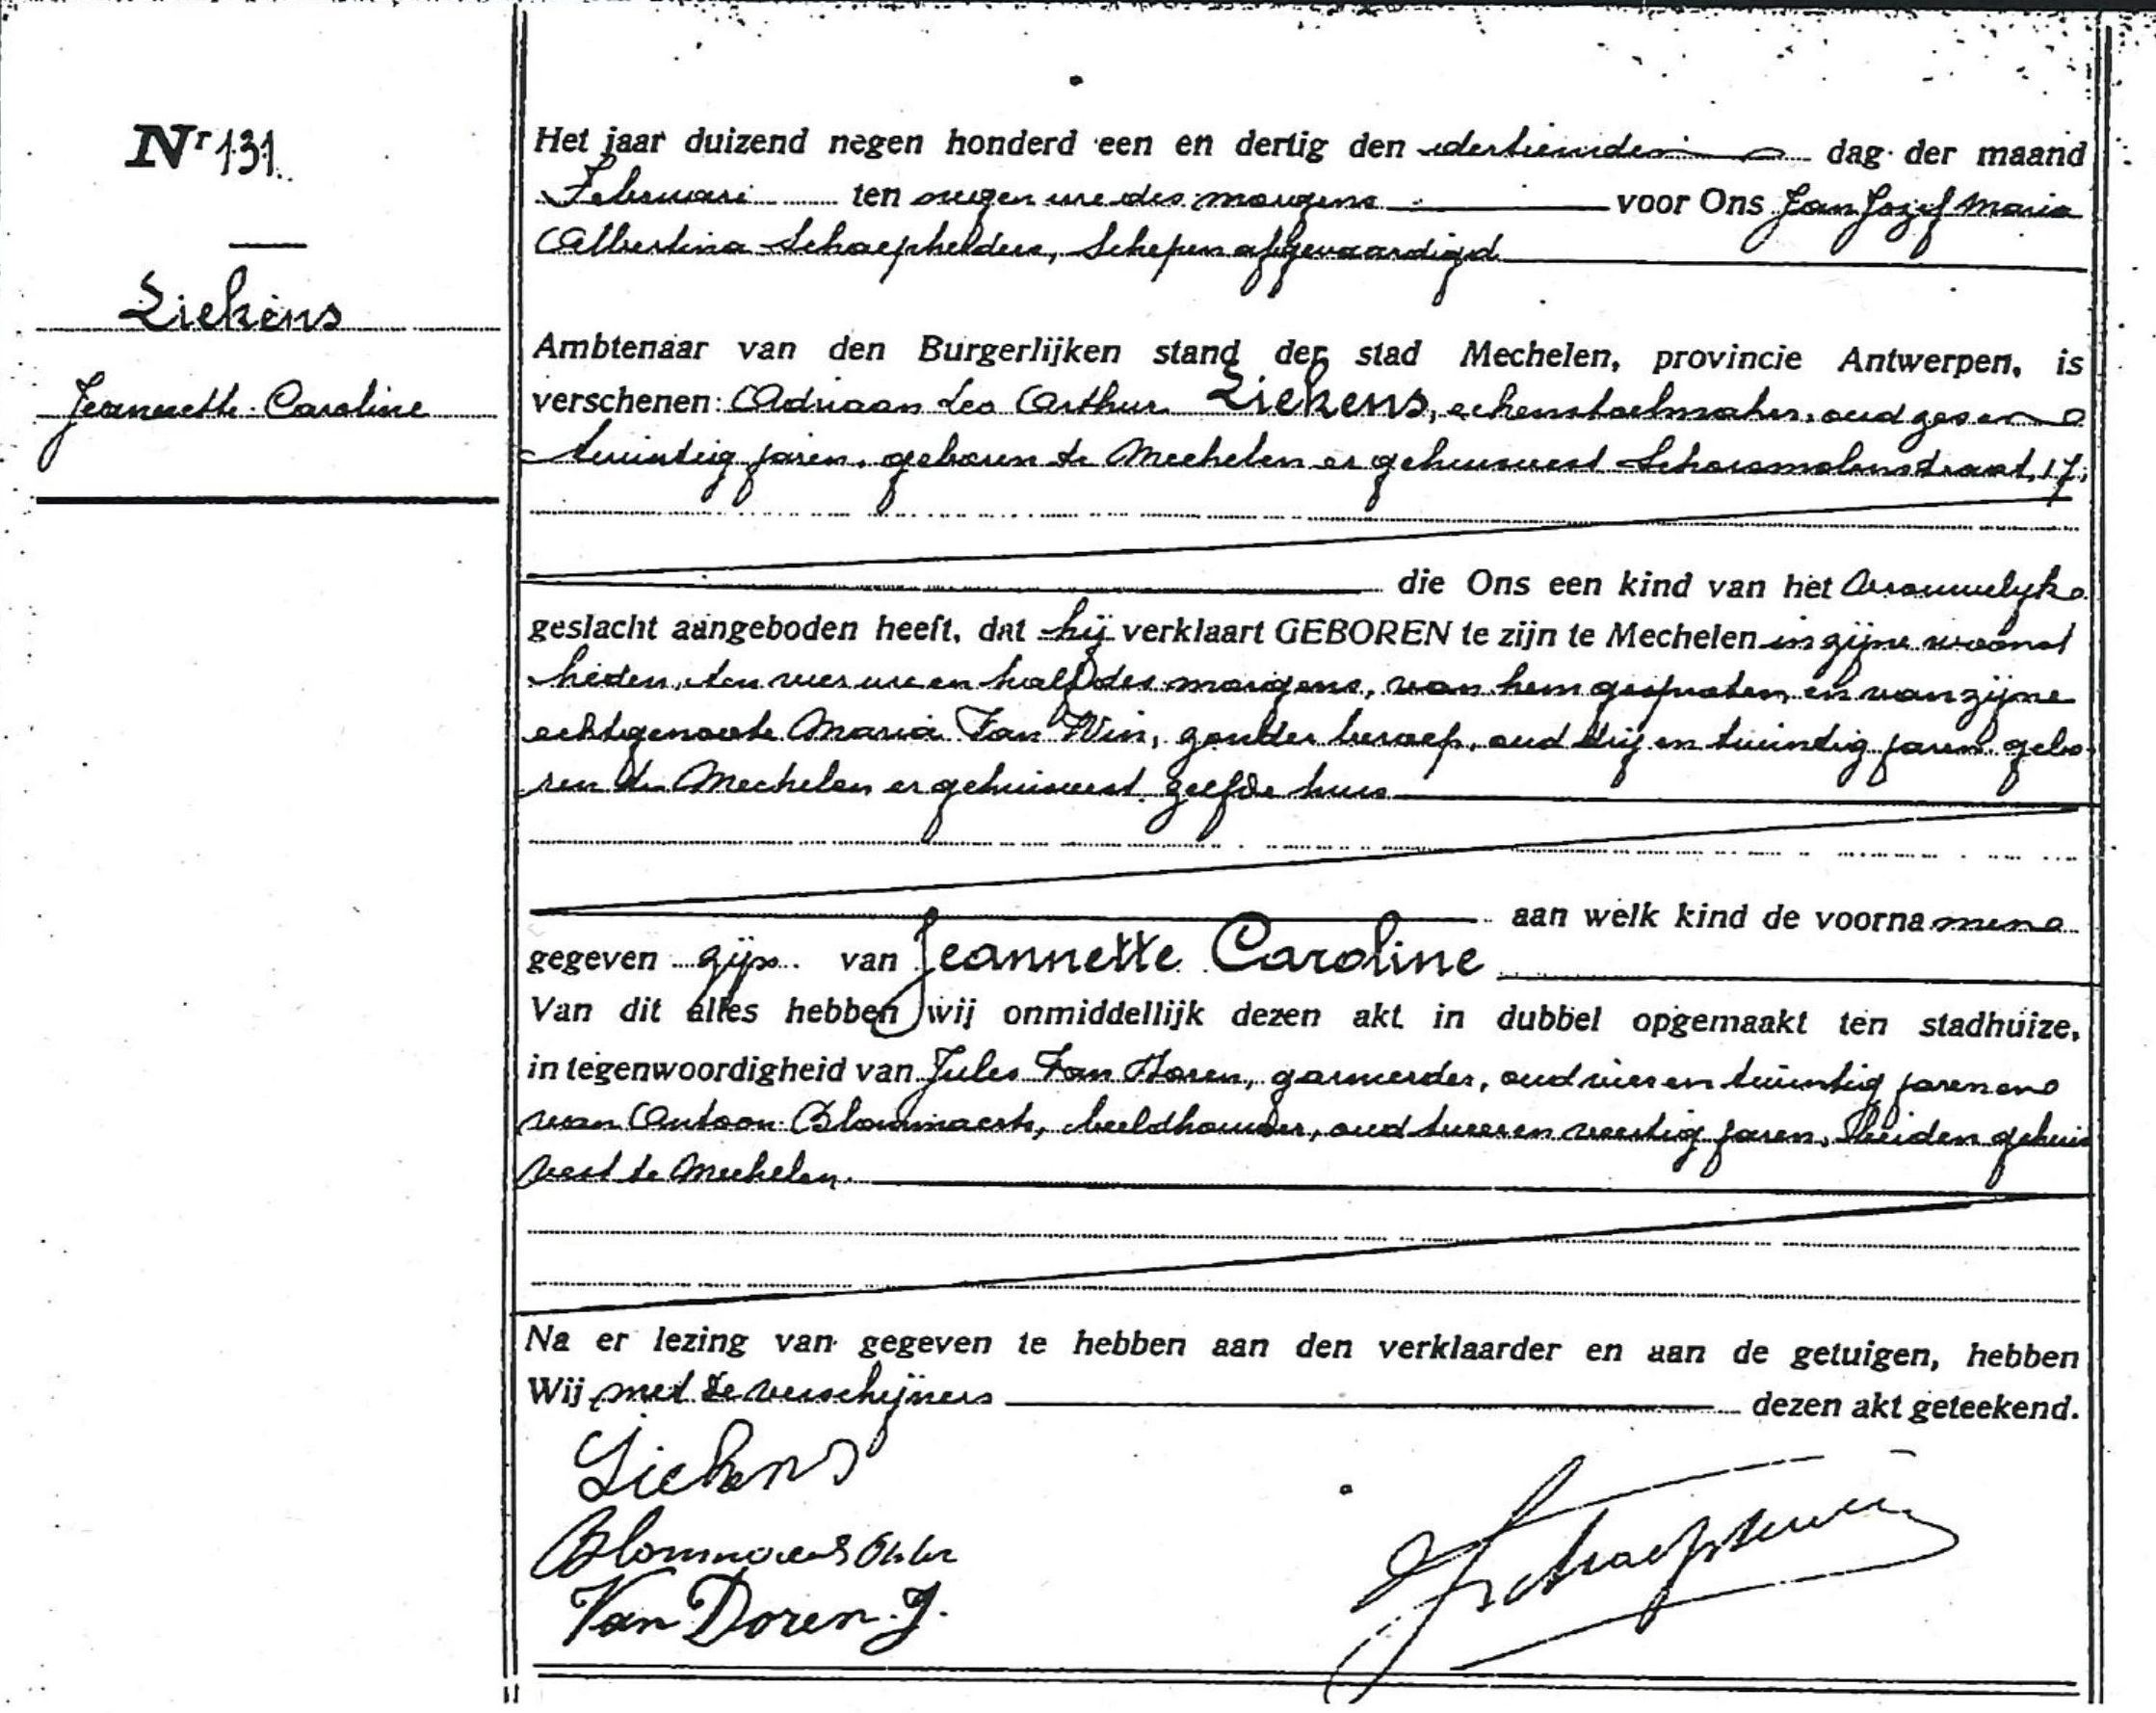 Nr 131.
Liekens
Jeannette Caroline
Het jaar duizend negen honderd een en dertig den dertienden dag der maand
Februari ten negen ure des morgens voor Ons Jan Jozef Maria
Albertina Schaephelders, Schepen afgevaardigd
Ambtenaar van den Burgerlijken stand der stad Mechelen, provincie Antwerpen, is
verschenen: Adriaan Leo Arthur Liekens, stoelmaker, oud zes en
twintig jaren, geboren te Mechelen er gehuisvest 17,
die Ons een kind van het vrouwelijk
geslacht aangeboden heeft, dat hij verklaart GEBOREN te zijn te Mechelen in zijne woonst
heden, ten vier ure en half des morgens, van hem gesproten, en van zijne
echtgenoote Maria Van Win, zonder beroep, oud drij en twintig jaren, gebo-
ren te Mechelen er gehuisvest zelfde huis
aan welk kind de voornamen
gegeven zijn van Jeannette Caroline
Van dit alles hebben wij onmiddellijk dezen akt in dubbel opgemaakt ten stadhuize,
in tegenwoordigheid van Jules Van Doren, garnierder, oud vier en twintig jaren en
van Antoon Blommaerts, beeldhouwer, oud twee en veertig jaren, beiden gehuis
vest te Mechelen.
Na er lezing van gegeven te hebben aan den verklaarder en aan de getuigen, hebben
Wij met de verschijners dezen akt geteekend.
Liekens
Van Doren J.